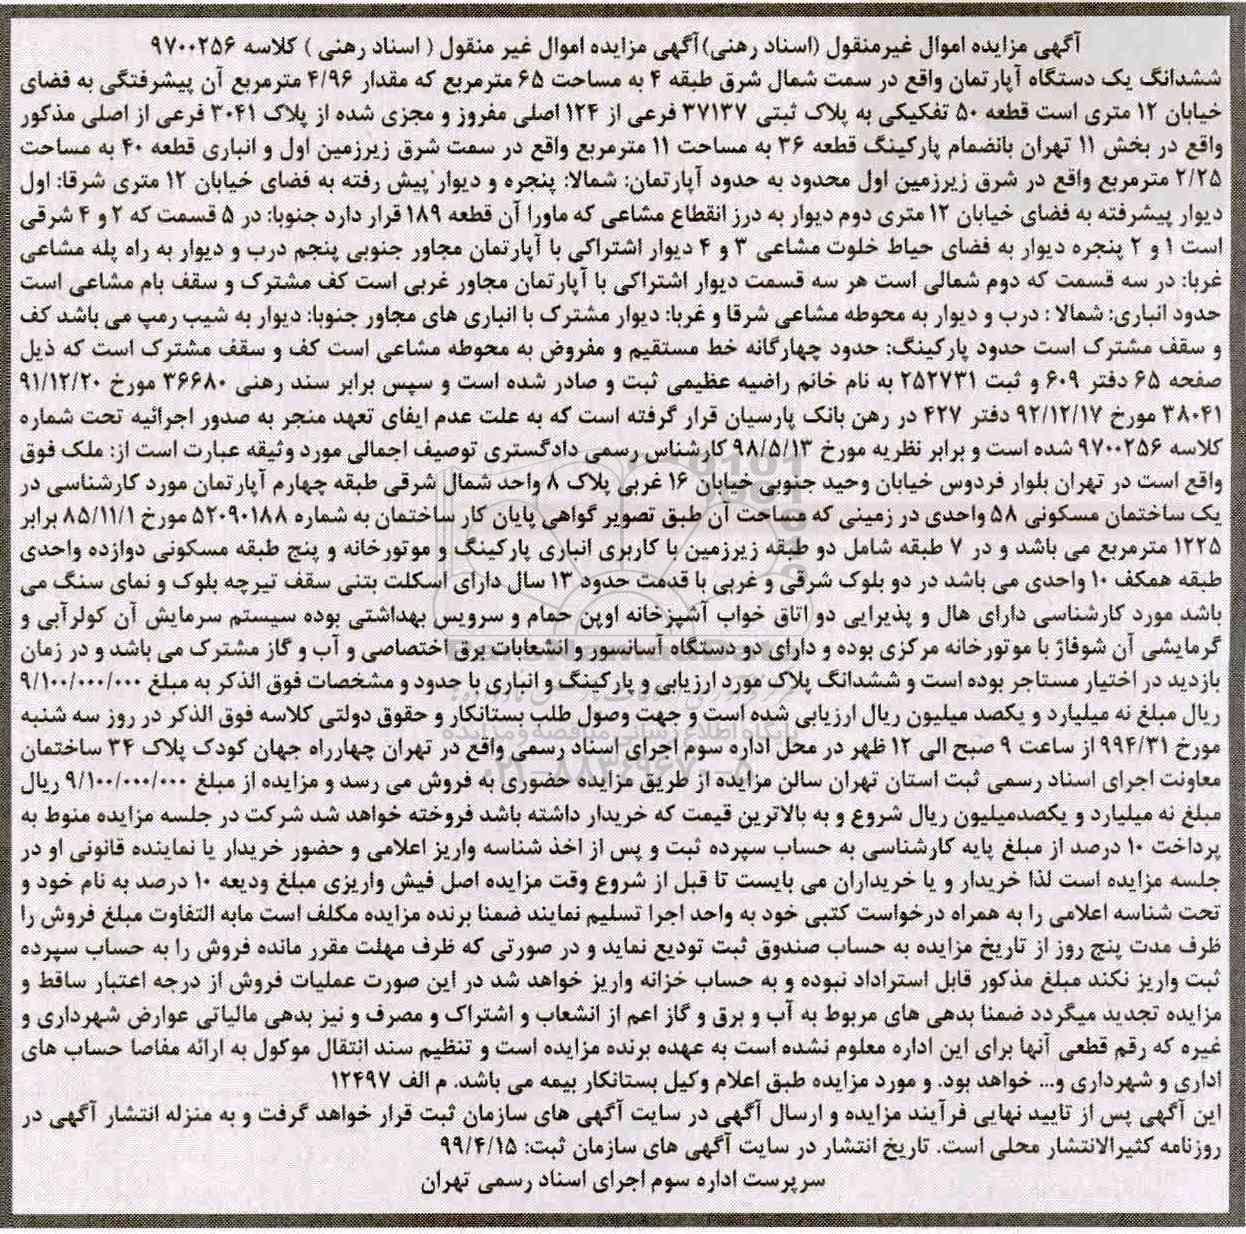 آگهی مزایده اموال غیرمنقول (اسناد رهنی) آگهی مزایده اموال غیر منقول ( اسناد رهنی ) کلاسه ۹۷۰۰۲۵۶
ششدانگ یک دستگاه آپارتمان واقع در سمت شمال شرق طبقه ۴ به مساحت ۶۵ مترمربع که مقدار ۴/۹۶ مترمربع آن پیشرفتگی به فضای
خیابان ۱۲ متری است قطعه ۵۰ تفکیکی به پلاک ثبتی ۳۷۱۳۷ فرعی از ۱۲۴ اصلی مفروز و مجزی شده از پلاک ۳۰۴۱ فرعی از اصلی مذکور
واقع در بخش ۱۱ تهران بانضمام پارکینگ قطعه ۳۶ به مساحت ۱۱ مترمربع واقع در سمت شرق زیرزمین اول و انباری قطعه ۴۰ به مساحت
۲/۲۵ مترمربع واقع در شرق زیرزمین اول محدود به حدود آپارتمان: شمالا: پنجره و دیوار پیش رفته به فضای خیابان ۱۲ متری شرقا: اول
دیوار پیشرفته به فضای خیابان ۱۲ متری دوم دیوار به درز انقطاع مشاعی که ماورا آن قطعه ۱۸۹ قرار دارد جنوبا: در ۵ قسمت که ۲ و ۴ شرقی
است ۱ و ۲ پنجره دیوار به فضای حیاط خلوت مشاعی ۳ و ۴ دیوار اشتراکی با آپارتمان مجاور جنوبی پنجم درب و دیوار به راه پله مشاعی
غربا: در سه قسمت که دوم شمالی است هر سه قسمت دیوار اشتراکی با آپارتمان مجاور غربی است کف مشترک و سقف بام مشاعی است
حدود انباری: شمالا : درب و دیوار به محوطه مشاعی شرقا و غربا: دیوار مشترک با انباری های مجاور جنوبا: دیوار به شیب رمپ می باشد کف
و سقف مشترک است حدود پارکینگ: حدود چهارگانه خط مستقیم و مفروض به محوطه مشاعی است کف و سقف مشترک است که ذیل
صفحه ۶۵ دفتر ۶۰۹ و ثبت ۲۵۲۷۳۱ به نام خانم راضیه عظیمی ثبت و صادر شده است و سپس برابر سند رهنی ۳۶۶۸۰ مورخ ۹۱/۱۲/۲۰
۳۸۰۴۱ مورخ ۹۲/۱۲/۱۷ دفتر ۴۲۷ در رهن بانک پارسیان قرار گرفته است که به علت عدم ایفای تعهد منجر به صدور اجرائیه تحت شماره
کلاسه ۹۷۰۰۲۵۶ شده است و برابر نظریه مورخ ۹۸/۵/۱۳ کارشناس رسمی دادگستری توصیف اجمالی مورد وثیقه عبارت است از: ملک فوق
واقع است در تهران بلوار فردوس خیابان وحید جنوبی خیابان ۱۶ غربی پلاک ۸ واحد شمال شرقی طبقه چهارم آپارتمان مورد کارشناسی در
یک ساختمان مسکونی ۵۸ واحدی در زمینی که مساحت آن طبق تصویر گواهی پایان کار ساختمان به شماره ۵۲۰۹۰۱۸۸ مورخ ۸۵/۱۱/۱ برابر
۱۲۲۵ مترمربع می باشد و در ۷ طبقه شامل دو طبقه زیرزمین با کاربری انباری پارکینگ و موتورخانه و پنج طبقه مسکونی دوازده واحدی
طبقه همکف ۱۰ واحدی می باشد در دو بلوک شرقی و غربی با قدمت حدود ۱۳ سال دارای اسکلت بتنی سقف تیرچه بلوک و نمای سنگ می
باشد مورد کارشناسی دارای هال و پذیرایی دو اتاق خواب آشپزخانه اوپن حمام و سرویس بهداشتی بوده سیستم سرمایش آن کولرآبی و
گرمایشی آن شوفاژ با موتورخانه مرکزی بوده و دارای دو دستگاه آسانسور و انشعابات برق اختصاصی و آب و گاز مشترک می باشد و در زمان
بازدید در اختیار مستاجر بوده است و ششدانگ پلاک مورد ارزیابی و پارکینگ و انباری با حدود و مشخصات فوق الذکر به مبلغ ۹/۱۰۰/۰۰۰/۰۰۰
ریال مبلغ نه میلیارد و یکصد میلیون ریال ارزیابی شده است و جهت وصول طلب بستانکار و حقوق دولتی کلاسه فوق الذکر در روز سه شنبه
مورخ ۹۹۴/۳۱ از ساعت ۹ صبح الی ۱۲ ظهر در محل اداره سوم اجرای اسناد رسمی واقع در تهران چهارراه جهان کودک پلاک ۳۴ ساختمان
معاونت اجرای اسناد رسمی ثبت استان تهران سالن مزایده از طریق مزایده حضوری به فروش می رسد و مزایده از مبلغ ۹/۱۰۰/۰۰۰/۰۰۰ ریال
مبلغ نه میلیارد و یکصدمیلیون ریال شروع و به بالاترین قیمت که خریدار داشته باشد فروخته خواهد شد شرکت در جلسه مزایده منوط به
پرداخت ۱۰ درصد از مبلغ پایه کارشناسی به حساب سپرده ثبت و پس از اخذ شناسه واریز اعلامی و حضور خریدار یا نماینده قانونی او در
جلسه مزایده است لذا خریدار و یا خریداران می بایست تا قبل از شروع وقت مزایده اصل فیش واریزی مبلغ ودیعه ۱۰ درصد به نام خود و
تحت شناسه اعلامی را به همراه درخواست کتبی خود به واحد اجرا تسلیم نمایند ضمنا برنده مزایده مکلف است مابه التفاوت مبلغ فروش را
ظرف مدت پنج روز از تاریخ مزایده به حساب صندوق ثبت تودیع نماید و در صورتی که ظرف مهلت مقرر مانده فروش را به حساب سپرده
ثبت واریز نکند مبلغ مذکور قابل استراداد نبوده و به حساب خزانه واریز خواهد شد در این صورت عملیات فروش از درجه اعتبار ساقط و
مزایده تجدید میگردد ضمنا بدهی های مربوط به آب و برق و گاز اعم از انشعاب و اشتراک و مصرف و نیز بدهی مالیاتی عوارض شهرداری و
غیره که رقم قطعی آنها برای این اداره معلوم نشده است به عهده برنده مزایده است و تنظیم سند انتقال موکول به ارائه مفاصا حساب های
اداری و شهرداری و... خواهد بود. و مورد مزایده طبق اعلام وکیل بستانکار بیمه می باشد. م الف ۱۲۴۹۷
این آگهی پس از تایید نهایی فرآیند مزایده و ارسال آگهی در سایت آگهی های سازمان ثبت قرار خواهد گرفت و به منزله انتشار آگهی در
روزنامه کثیرالانتشار محلی است. تاریخ انتشار در سایت آگهی های سازمان ثبت: ۹۹/۴/۱۵
سرپرست اداره سوم اجرای اسناد رسمی تهران